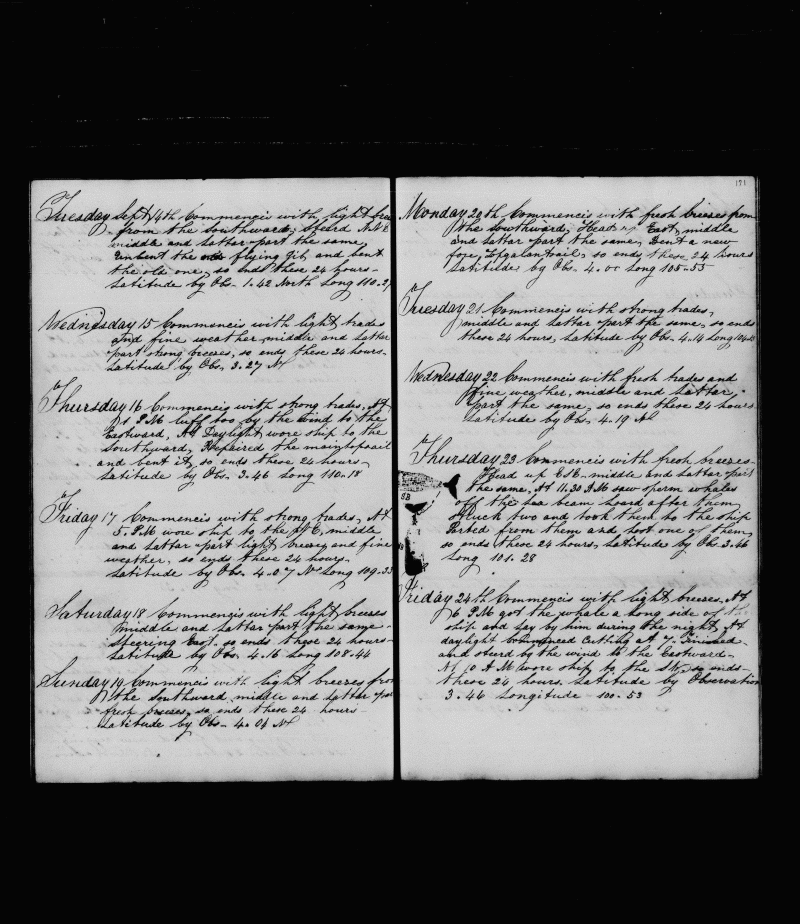 Tuesday Sept 14th Commencis with light bree
from the Southward, steard N.N.E
middle and lattar part the same,
unbent the old flying Gib and bent
the old one, so ends these 24 hours-
Latitude by Obs- 1.42 North Long 110.2
Wednesday 15 Commencis with light trades
and fine weather, middle and lattar
part strong breeses, so ends these 24 hours-
Latitude by Obs. 3.27 N
Thursday 16 Commencis with strong trades, At
1 P.M luff too by the wind to the
Eastward, At Daylight wore ship to the
Southward, Repaired the maintopsail
and bent it, so ends these 24 hours,
Latitude by Obs- 3.46 Long 110.18
Friday 17 Commencis with strong trades, At
5. P.M wore ship to the N.E, middle
and lattar part light breeses and fine
weather, so ends these 24 hours-
Latitude by Obs. 4.07 N Long 109.33
Saturday 18 Commencis with light breeses
middle and lattar part the same-
Steering East- so ends these 24 hours-
Latitude by Obs. 4.16 Long 108.44
Sunday 19 Commencis with light breeses fro
the southward middle and lattar par
fresh breeses, so ends these 24 hours-
Latitude by Obs- 4.04 N
171
Monday 20th Commencis with fresh breeses from
the Southward, Head up East, middle
and lattar part the same, Bent a new
fore Topgalantsail, so ends these 24 hours
Latitude by Obs- 4.00 Long 105-55
Tuesday 21 Commencis with strong trades,
middle and lattar part the same, so ends
these 24 hours, Latitude by Obs- 4.14 Long 104
Wednesday 22 Commencis with fresh trades and
fine weather, middle and lattar
part the same, so ends these 24 hours-
Latitude by Obs- 4.19 N
Thursday 23 Commencis with fresh breeses-
Head up E.S.E- middle and lattar part
the same, At 11.30 A.M saw sperm whales
off the lea beam loard after them,
Struck two and took them to the ship
Parted from them and lost one of them,
so ends these 24 hours, Latitude by Ob- 3.46
Long 101.28
SB
Friday 24th Commencis with light breeses, At
6 P.M got the whale a long side of the
ship and lay by him during the night, At
daylight commenced Cutting at 7- Finished
and steerd by the wind to the Eastward-
At 10 A M wore ship to the so ends-
these 24 hours, Latitude by Observation
3.46 Longitude 100-53